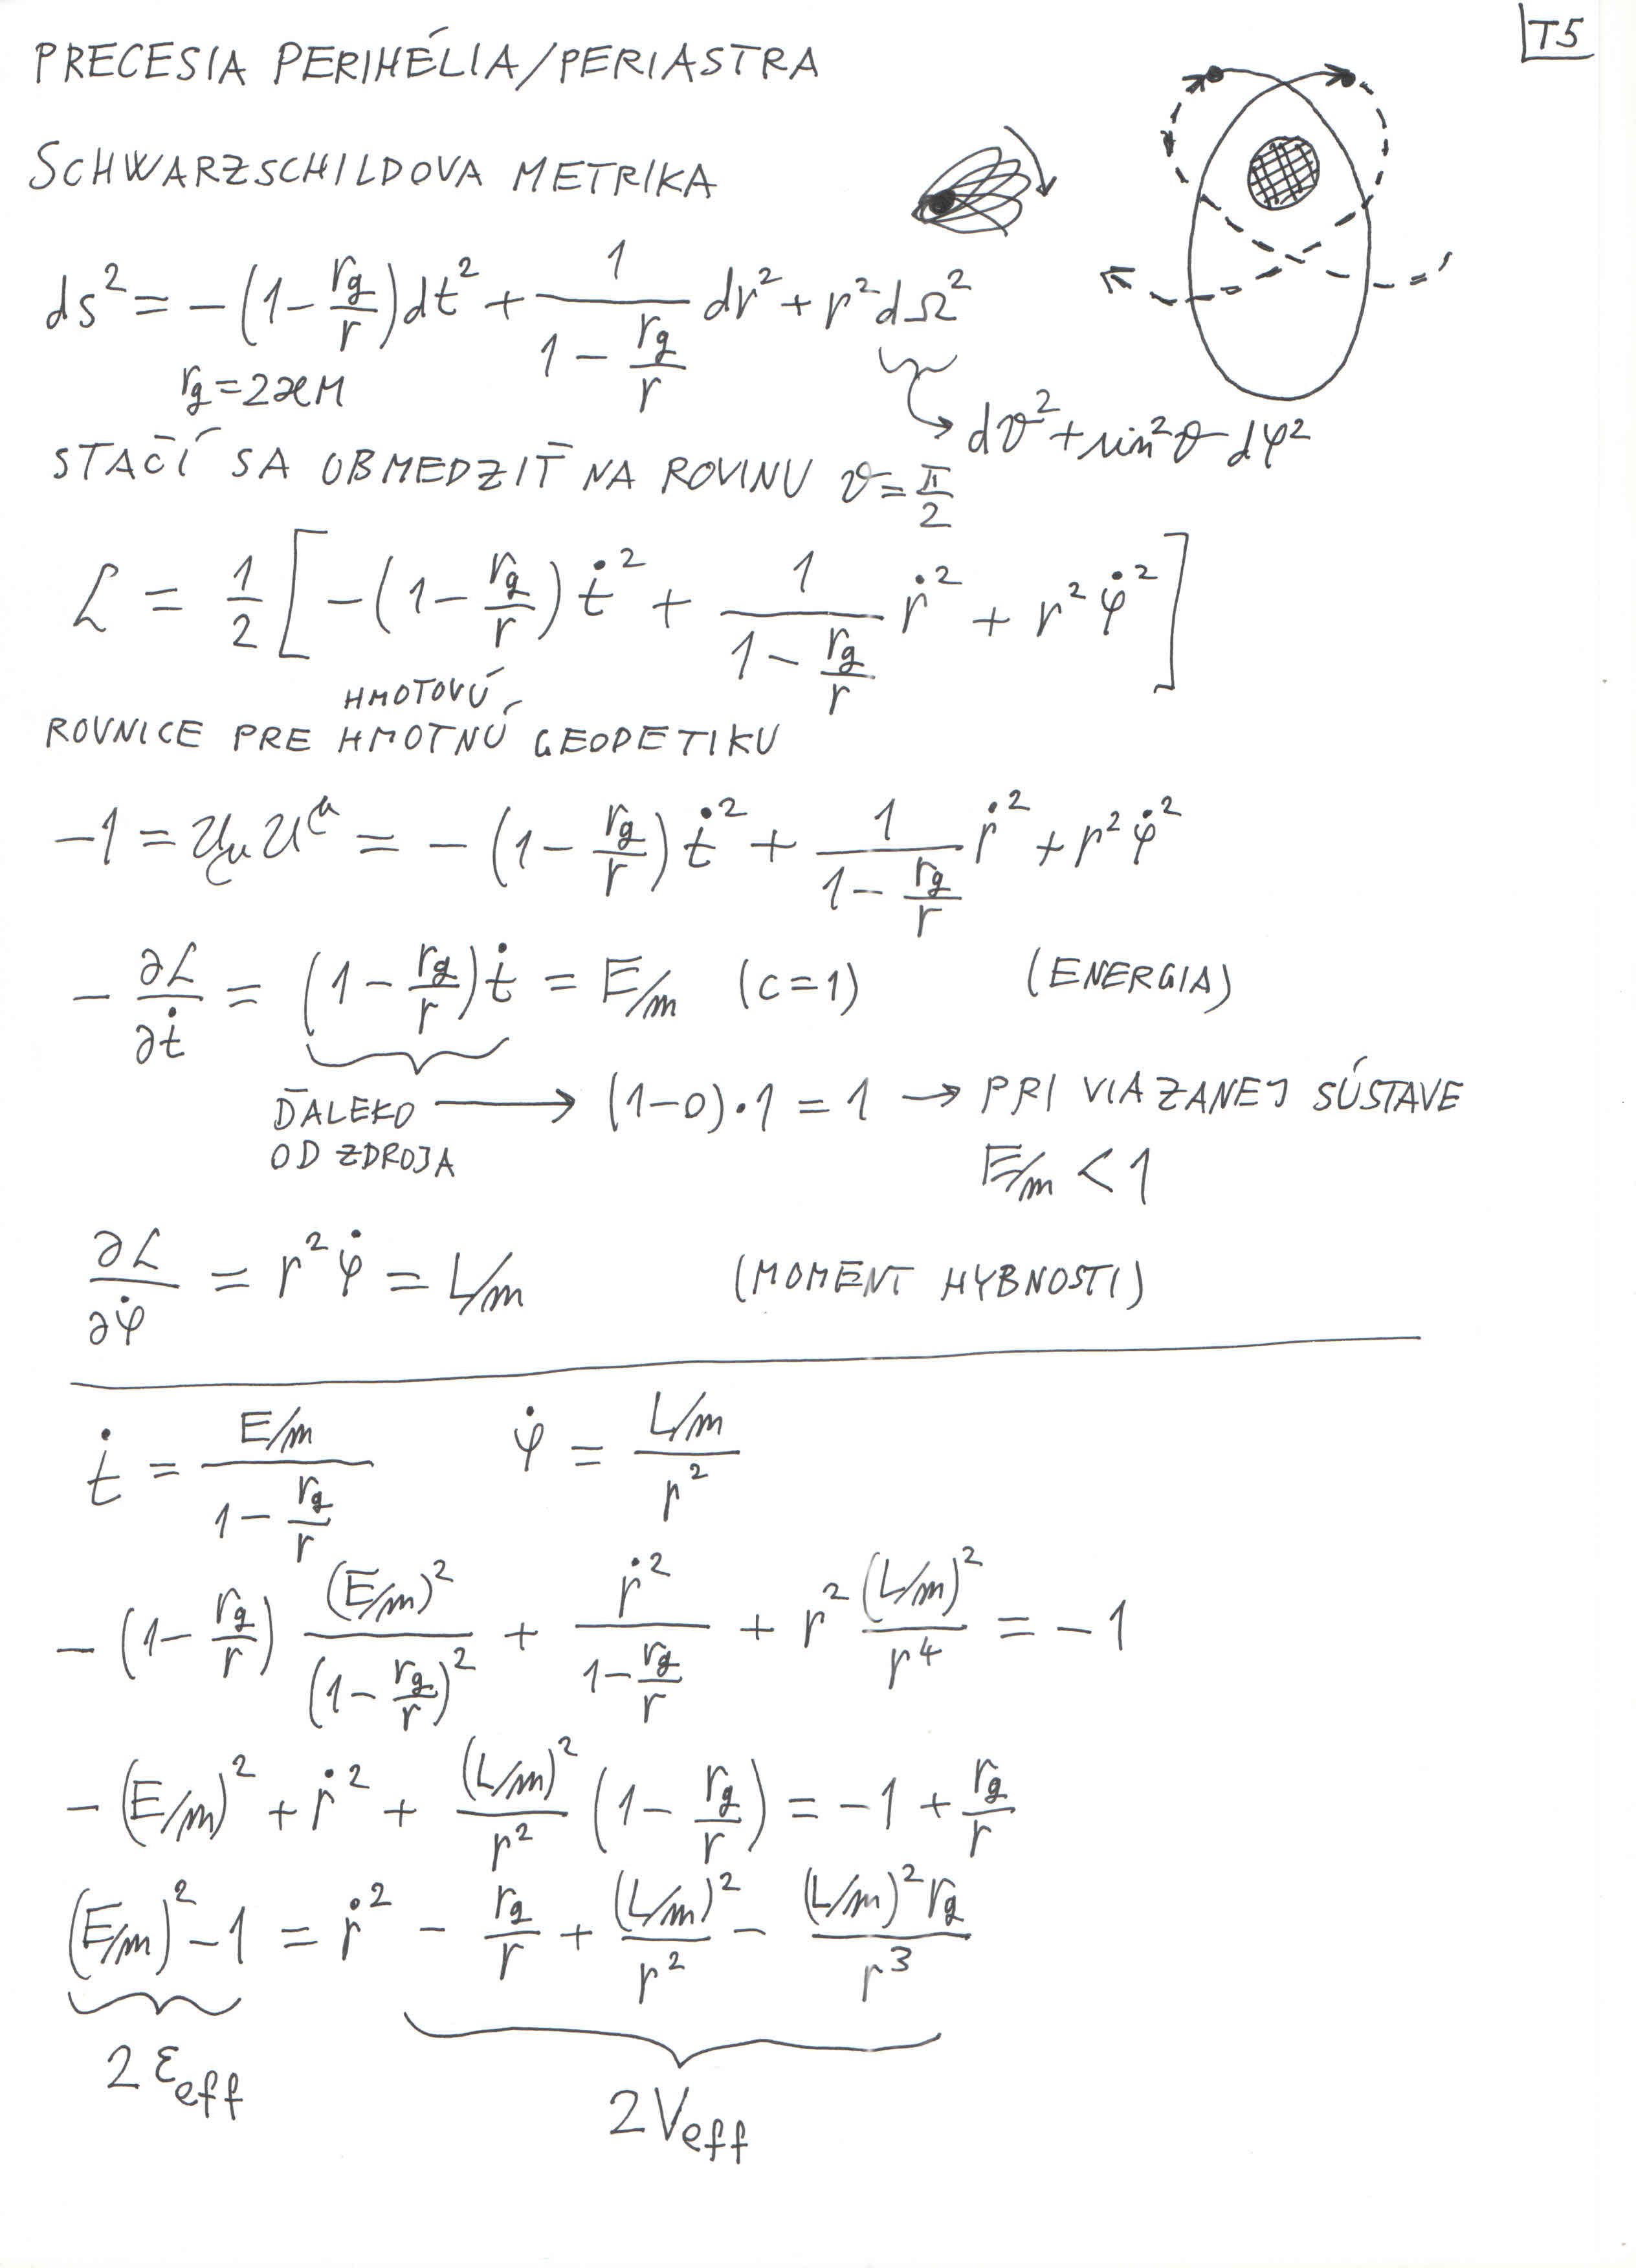 T5
PRECESIA PERIHÉLIA/PERIASTRA
SCHWARZSCHILDOVA METRIKA
ds² = -(1 - r_g/r)dt² + 1/(1 - r_g/r) dr² + r²dΩ²
r_g = 2ϰM
dϑ² + sin²ϑ dφ²
STAČÍ SA OBMEDZIŤ NA ROVINU ϑ = π/2
ℒ = 1/2 [-(1 - r_g/r)ṫ² + 1/(1 - r_g/r) ṙ² + r²φ̇²]
HMOTOVÚ
ROVNICE PRE HMOTNÚ GEODETIKU
-1 = u_μ u^μ = -(1 - r_g/r)ṫ² + 1/(1 - r_g/r) ṙ² + r²φ̇²
-∂ℒ/∂ṫ = (1 - r_g/r)ṫ = E/m (c=1) (ENERGIA)
ĎALEKO → (1-0)·1 = 1 → PRI VIAZANEJ SÚSTAVE
OD ZDROJA E/m < 1
∂ℒ/∂φ̇ = r²φ̇ = L/m (MOMENT HYBNOSTI)
ṫ = (E/m)/(1 - r_g/r) φ̇ = (L/m)/r²
-(1 - r_g/r) (E/m)²/(1 - r_g/r)² + ṙ²/(1 - r_g/r) + r² (L/m)²/r⁴ = -1
-(E/m)² + ṙ² + (L/m)²/r² (1 - r_g/r) = -1 + r_g/r
(E/m)² - 1 = ṙ² - r_g/r + (L/m)²/r² - (L/m)² r_g/r³
2ε_eff 2V_eff